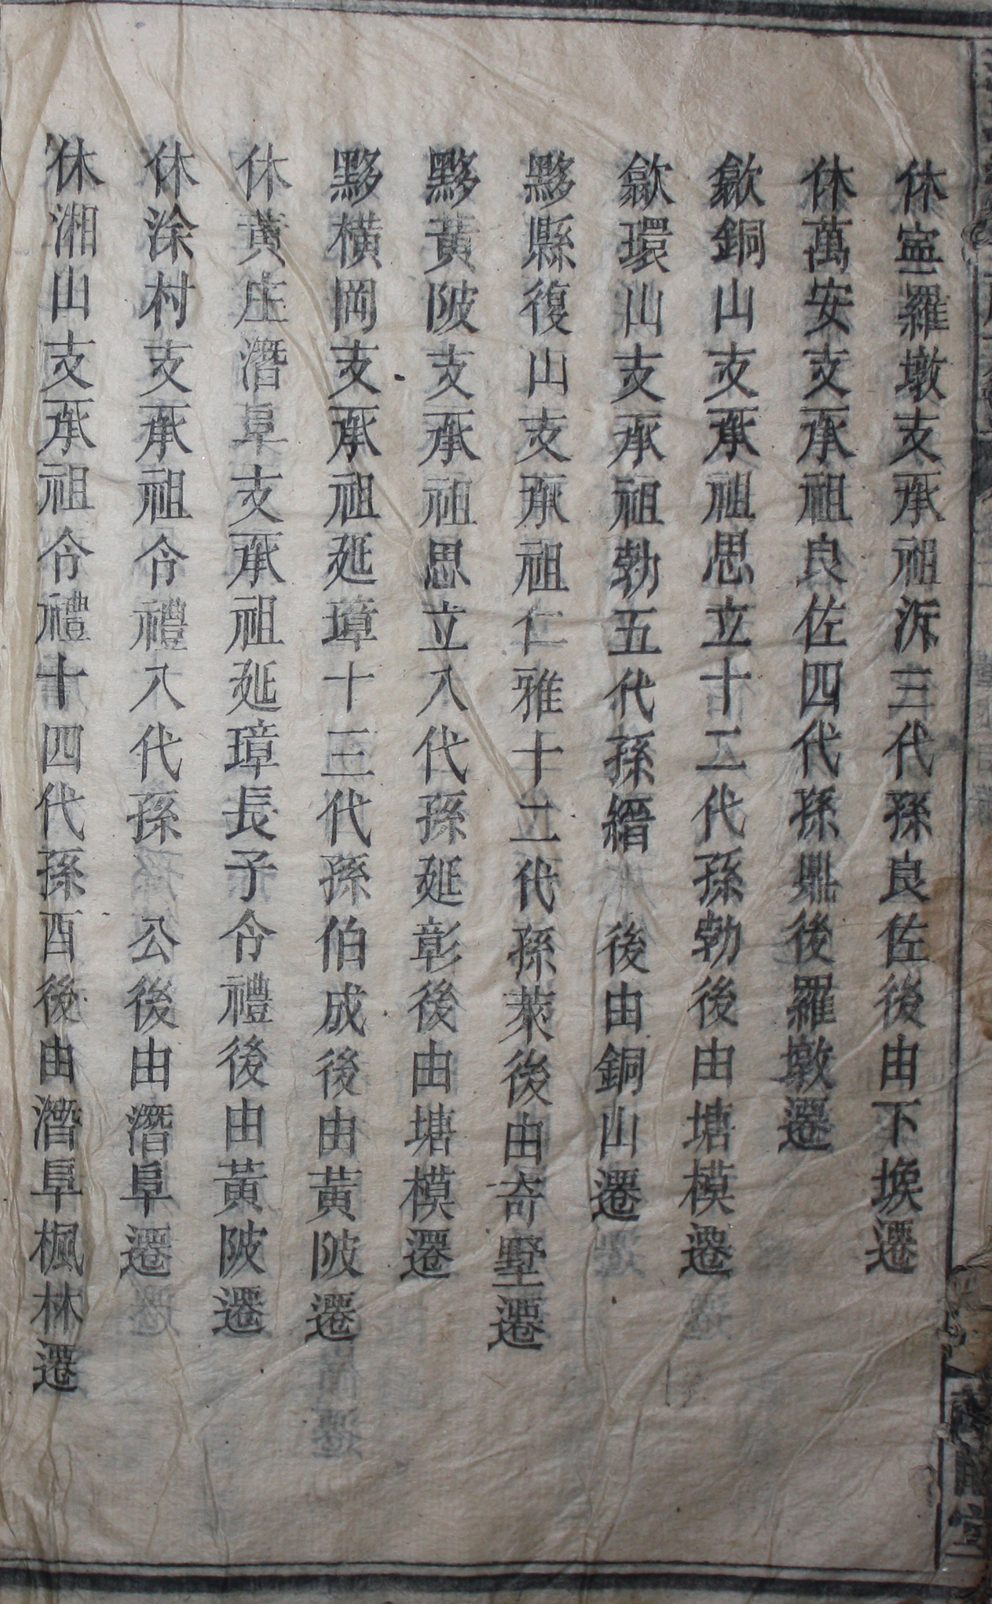 休寧羅墩支承祖泝三代孫良佐後由下堠遷
休萬安支承祖良佐四代孫鼎後羅墩遷
歙銅山支承祖思立十二代孫勃後由塘模遷
歙環山支承祖勃五代孫縉 後由銅山遷
黟縣復山支承祖仁雅十二代孫萊後由奇墅遷
黟黃陂支承祖思立八代孫延彰後由塘模遷
黟橫岡支承祖延璋十三代孫伯成後由黃陂遷
休黃庄潛阜支承祖延璋長子令禮後由黃陂遷
休涂村支承祖令禮八代孫 公後由潛阜遷
休湘山支承祖令禮十四代孫酉後由潛阜楓林遷